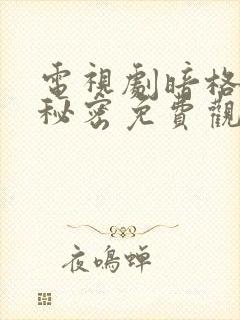 電視劇暗格
秘密免費觀
夜鳴蟬